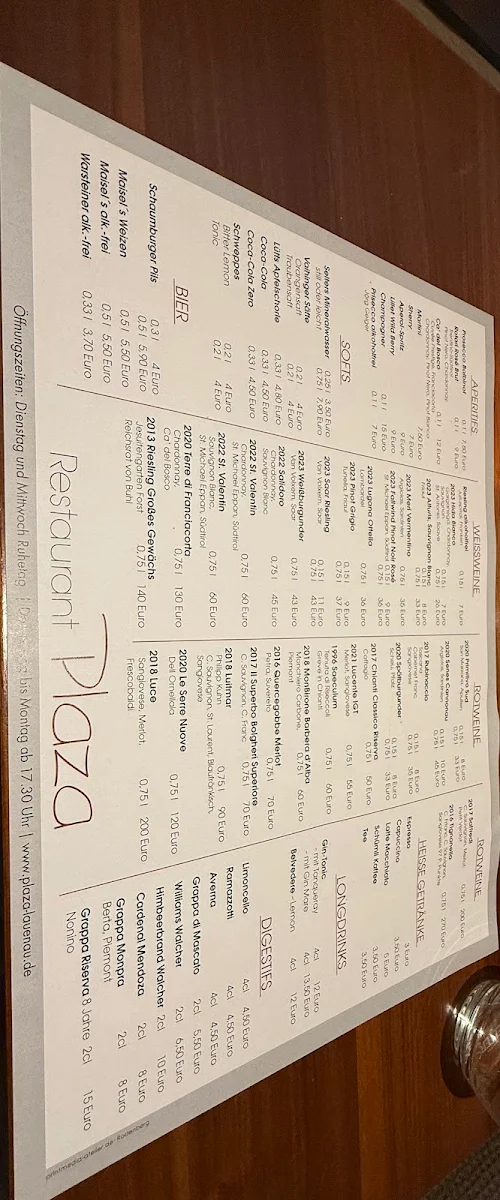 APERITIFS
Prosecco Bulbonat 0,1 l 7,50 Euro
0,1 l 9 Euro
Ca' del Bosco 0,1 l 12 Euro
Martini
Sherry 7 Euro
Aperol-Spritz 9 Euro
Lillet Wild Berry 9 Euro
Champagner 0,1 l 15 Euro
Prisecco alkoholfrei 0,1 l 7 Euro
Jörg Geiger
SOFTS
Selters Mineralwasser 0,25 l 3,50 Euro
still oder leicht 0,75 l 7,90 Euro
Vaihinger Säfte
Orangensaft 0,2 l 4 Euro
Traubensaft 0,2 l 4 Euro
Lütts Apfelschorle 0,33 l 4,80 Euro
Coca-Cola 0,33 l 4,50 Euro
Coca-Cola Zero 0,33 l 4,50 Euro
Schweppes
Bitter Lemon 0,2 l 4 Euro
Tonic 0,2 l 4 Euro
BIER
Schaumburger Pils 0,3 l 4 Euro
0,5 l 5,90 Euro
Maisel's Weizen 0,5 l 5,50 Euro
Maisel's alk.-frei 0,5 l 5,50 Euro
Warsteiner alk.-frei 0,33 l 3,70 Euro
WEISSWEINE
Riesling alkoholfrei 0,15 l 7 Euro
2023 Meri Vermentino 0,75 l 36 Euro
2023 Fallwind Pinot Noir Rosé 0,15 l 9 Euro
St. Michael Eppan, Südtirol 0,75 l 36 Euro
2023 Lugana Ottella 0,75 l 36 Euro
Lombardei
2023 Pinot Grigio 0,15 l 9 Euro
Tunella, Friaul 0,75 l 37 Euro
2023 Saar Riesling 0,15 l 11 Euro
Van Volxem, Saar 0,75 l 43 Euro
2023 Weißburgunder 0,75 l 43 Euro
Van Volxem, Saar
2022 Salibrio 0,75 l 45 Euro
Chardonnay,
Sauvignon Blanc
2022 St. Valentin 0,75 l 60 Euro
Chardonnay,
St. Michael Eppan, Südtirol
2022 St. Valentin 0,75 l 60 Euro
Sauvignon Blanc,
St. Michael Eppan, Südtirol
2020 Terre di Franciacorta 0,75 l 130 Euro
Chardonnay,
Ca' del Bosco
2013 Riesling Großes Gewächs 0,75 l 140 Euro
Jesuitengarten Forst
Reichsrat von Buhl
ROTWEINE
2020 Primitivo Sud 0,15 l 8 Euro
0,75 l 33 Euro
2020 Senes Cannonau 0,15 l 10 Euro
0,75 l 45 Euro
2017 Rubinaccio 0,15 l 8 Euro
0,75 l 35 Euro
2020 Spätburgunder 0,15 l 8 Euro
0,75 l 33 Euro
2017 Chianti Classico Riserva 0,75 l 50 Euro
Carpago
2021 Lucente IGT 0,75 l 55 Euro
Merlot, Sangiovese
1996 Saeculum 0,75 l 60 Euro
Tenuta di Riseccoli
Greve in Chianti
2018 MonBirone Barbera d'Alba 0,75 l 60 Euro
Monchiero Carbone,
Piemont
2016 Quercegobbe Merlot 0,75 l 70 Euro
Petra, Suvereto
2017 Il Superbo Bolgheri Superiore
C. Sauvignon, C. Franc 0,75 l 70 Euro
2018 Luitmar 0,75 l 90 Euro
Philipp Kuhn
C. Sauvignon, St. Laurent, Blaufränkisch,
Sangiovese
2020 Le Serre Nuove 0,75 l 120 Euro
Dell' Ornellaia
2018 Luce 0,75 l 200 Euro
Sangiovese, Merlot,
Frescobaldi
ROTWEINE
2017 Saffredi 0,75 l 200 Euro
2016 Tignanello 0,75 l 270 Euro
HEISSE GETRÄNKE
Espresso 3 Euro
Capuccino 3,50 Euro
Latte Macchiato 5 Euro
Schümli Kaffee 3,50 Euro
Tee 3,50 Euro
LONGDRINKS
Gin-Tonic
- mit Tanqueray 4cl 12 Euro
- mit Gin Mare 4cl 13,50 Euro
Belvedere - Lemon 4cl 12 Euro
DIGESTIFS
Limoncello 4cl 4,50 Euro
Ramazzotti 4cl 4,50 Euro
Averna 4cl 4,50 Euro
Grappa di Moscato 2cl 5,50 Euro
Williams Walcher 2cl 6,50 Euro
Himbeerbrand Walcher 2cl 10 Euro
Cardenal Mendoza 2cl 8 Euro
Grappa Monpra 2cl 8 Euro
Berta, Piemont
Grappa Riserva 8 Jahre 2cl 15 Euro
Nonino
Restaurant Plaza
Öffnungszeiten: Dienstag und Mittwoch Ruhetag | bis Montag ab 17.30 Uhr | www.plaza-lauenau.de
printmedia-atelier.de Rodenberg